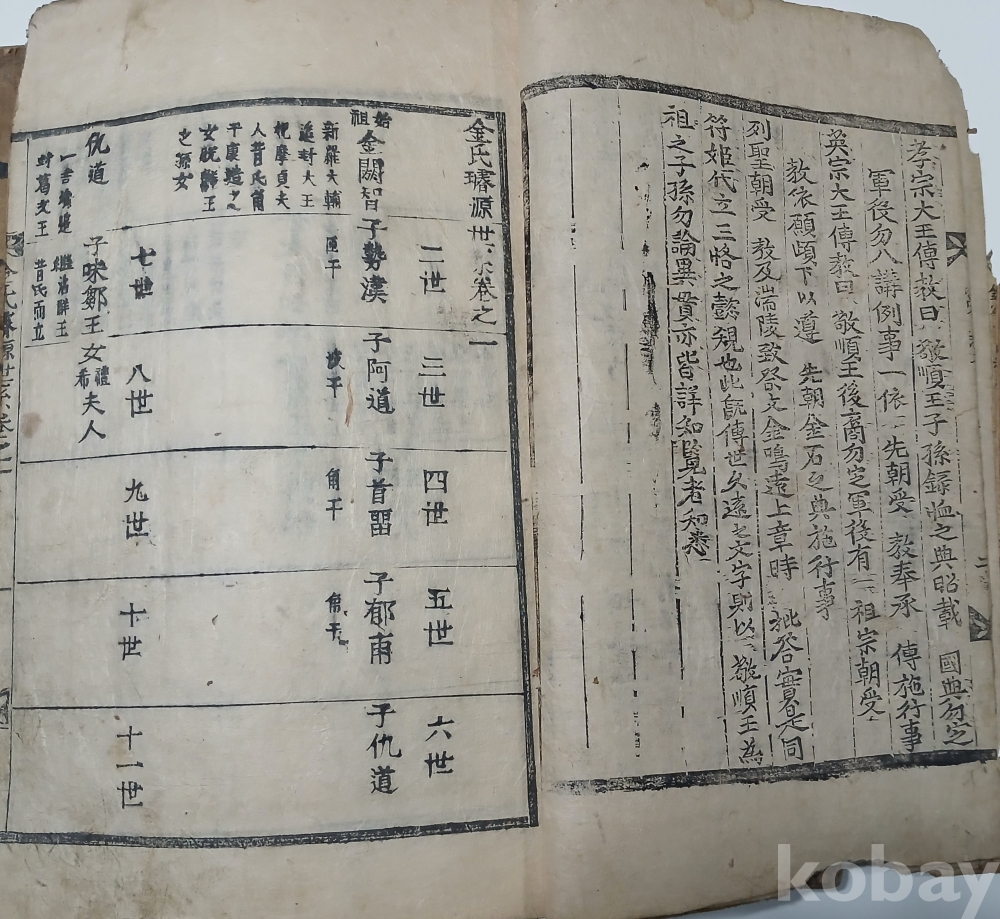 孝宗大王傳教曰敬順王子孫錄恤之典昭載 國典勿定
軍後勿八講例事一依 先朝受 教奉承 傳施行事
英宗大王傳教曰敬順王後裔勿定軍後有 祖宗朝受
教依願頉下以遵 先朝金石之典施行事
列聖朝受 教及湍陵致祭文金鳴遠上章時 批答寔是同
符姬代立三恪之懿䂓也此旣傳世久遠之文字則以 敬順王為
祖之子孫勿論異貫亦皆詳知覽者知悉
金氏璿源世系卷之一
二世
三世
四世
五世
六世
始祖金閼智
子勢漢
子阿道
子首畱
子郁甫
子仇道
新羅大輔
追封大王
妃摩貞夫
人昔氏
干康造之
女脫解王
之孫女
波干
角干
角干
七世
八世
九世
十世
十一世
仇道
子味鄒王
女禮希夫人
封葛文王
繼沾解王
昔氏而立
金氏璿源世系卷之一
kobay